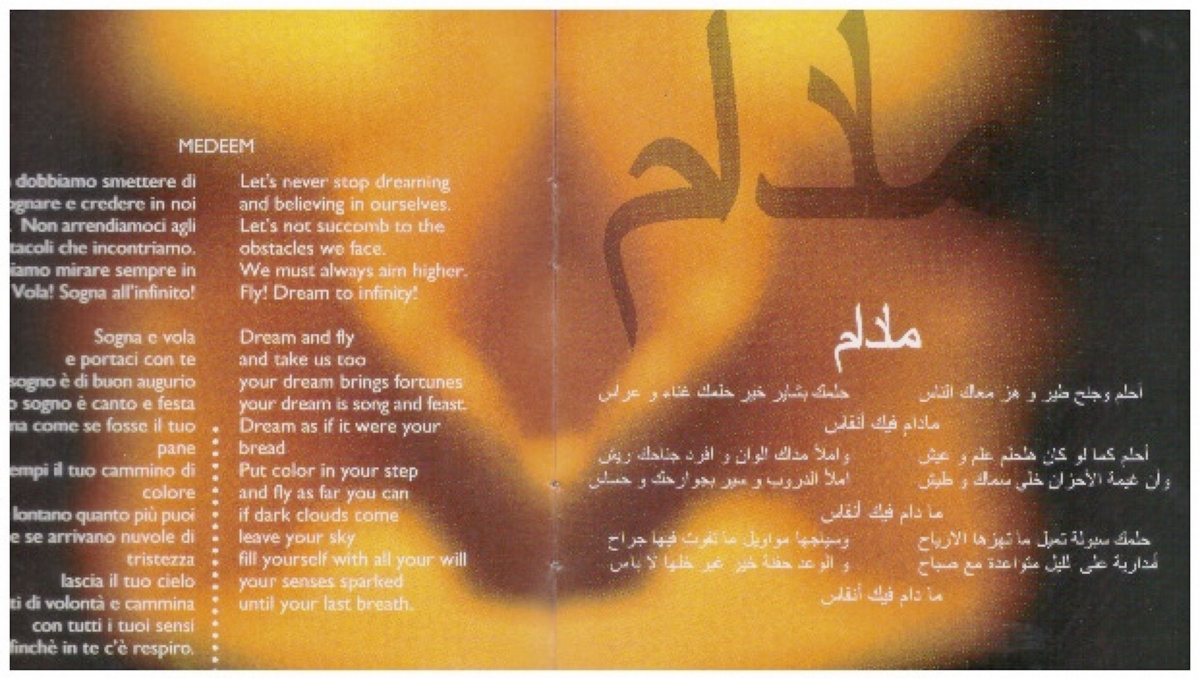 MEDEEM
dobbiamo smettere di
ognare e credere in noi
Non arrendiamoci agli
tacoli che incontriamo.
iamo mirare sempre in
Vola! Sogna all'infinito!
Sogna e vola
e portaci con te
sogno è di buon augurio
o sogno è canto e festa
na come se fosse il tuo
pane
empi il tuo cammino di
colore
lontano quanto più puoi
e se arrivano nuvole di
tristezza
lascia il tuo cielo
ti di volontà e cammina
con tutti i tuoi sensi
finchè in te c'è respiro.
Let's never stop dreaming
and believing in ourselves.
Let's not succomb to the
obstacles we face.
We must always aim higher.
Fly! Dream to infinity!
Dream and fly
and take us too
your dream brings fortunes
your dream is song and feast.
Dream as if it were your
bread
Put color in your step
and fly as far you can
if dark clouds come
leave your sky
fill yourself with all your will
your senses sparked
until your last breath.
مادام
مادام
أحلم وجنح طير و هز معاك الناس حلمك بشاير خير حلمك غناء و عراس
مادام فيك أنفاس
أحلم كما لو كان هلحلم علم و عيش و املأ مداك الوان و افرد جناحك ريش
وأن غيمة الأحزان خلي سماك و طيش املأ الدروب و سير بجوارحك و حسك
ما دام فيك أنفاس
حلمك سبولة تميل ما تهزها الارياح وسيلجها مواويل ما تفوت فيها جراح
مداربة على لليل متواعدة مع صباح و الوعد حفنة خير عبر خلها لا باس
ما دام فيك أنفاس